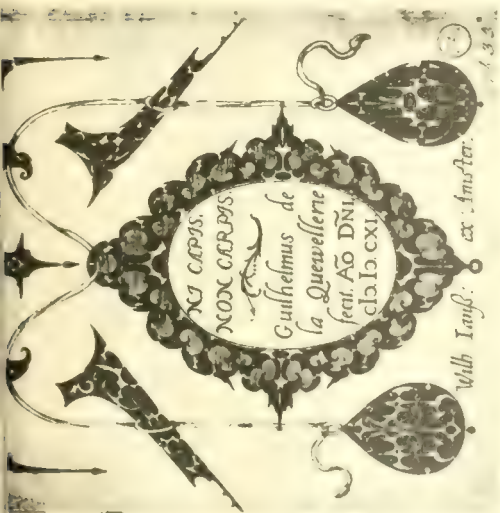 NI CAPIS,
NON CARPIS
Guilhelmus de
la Quewellerie
fecit. Aō DÑI.
cIɔ.Iɔ.CXI.
Wilh Ianß: ex: Amster: